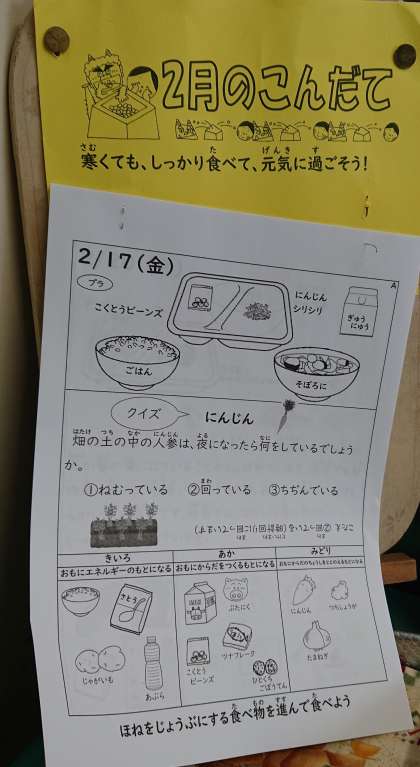 2月のこんだて
寒くても、しっかり食べて、元気に過ごそう!
2/17(金)
A
プラ
こくとうビーンズ
にんじん
シリシリ
ぎゅう
にゅう
ごはん
そぼろに
クイズ
にんじん
畑の土の中の人参は、夜になったら何をしているでしょう
か。
①ねむっている ②回っている ③ちぢんでいる
こたえ ②回っている(時計回りに回っています)
きいろ
おもにエネルギーのもとになる
さとう
じゃがいも
あぶら
あか
おもにからだをつくるもとになる
ぶたにく
ツナフレーク
こくとう
ビーンズ
ひとくち
ごぼうてん
みどり
おもにからだのちょうしをととのえるもとになる
にんじん
つちしょうが
たまねぎ
ほねをじょうぶにする食べ物を進んで食べよう